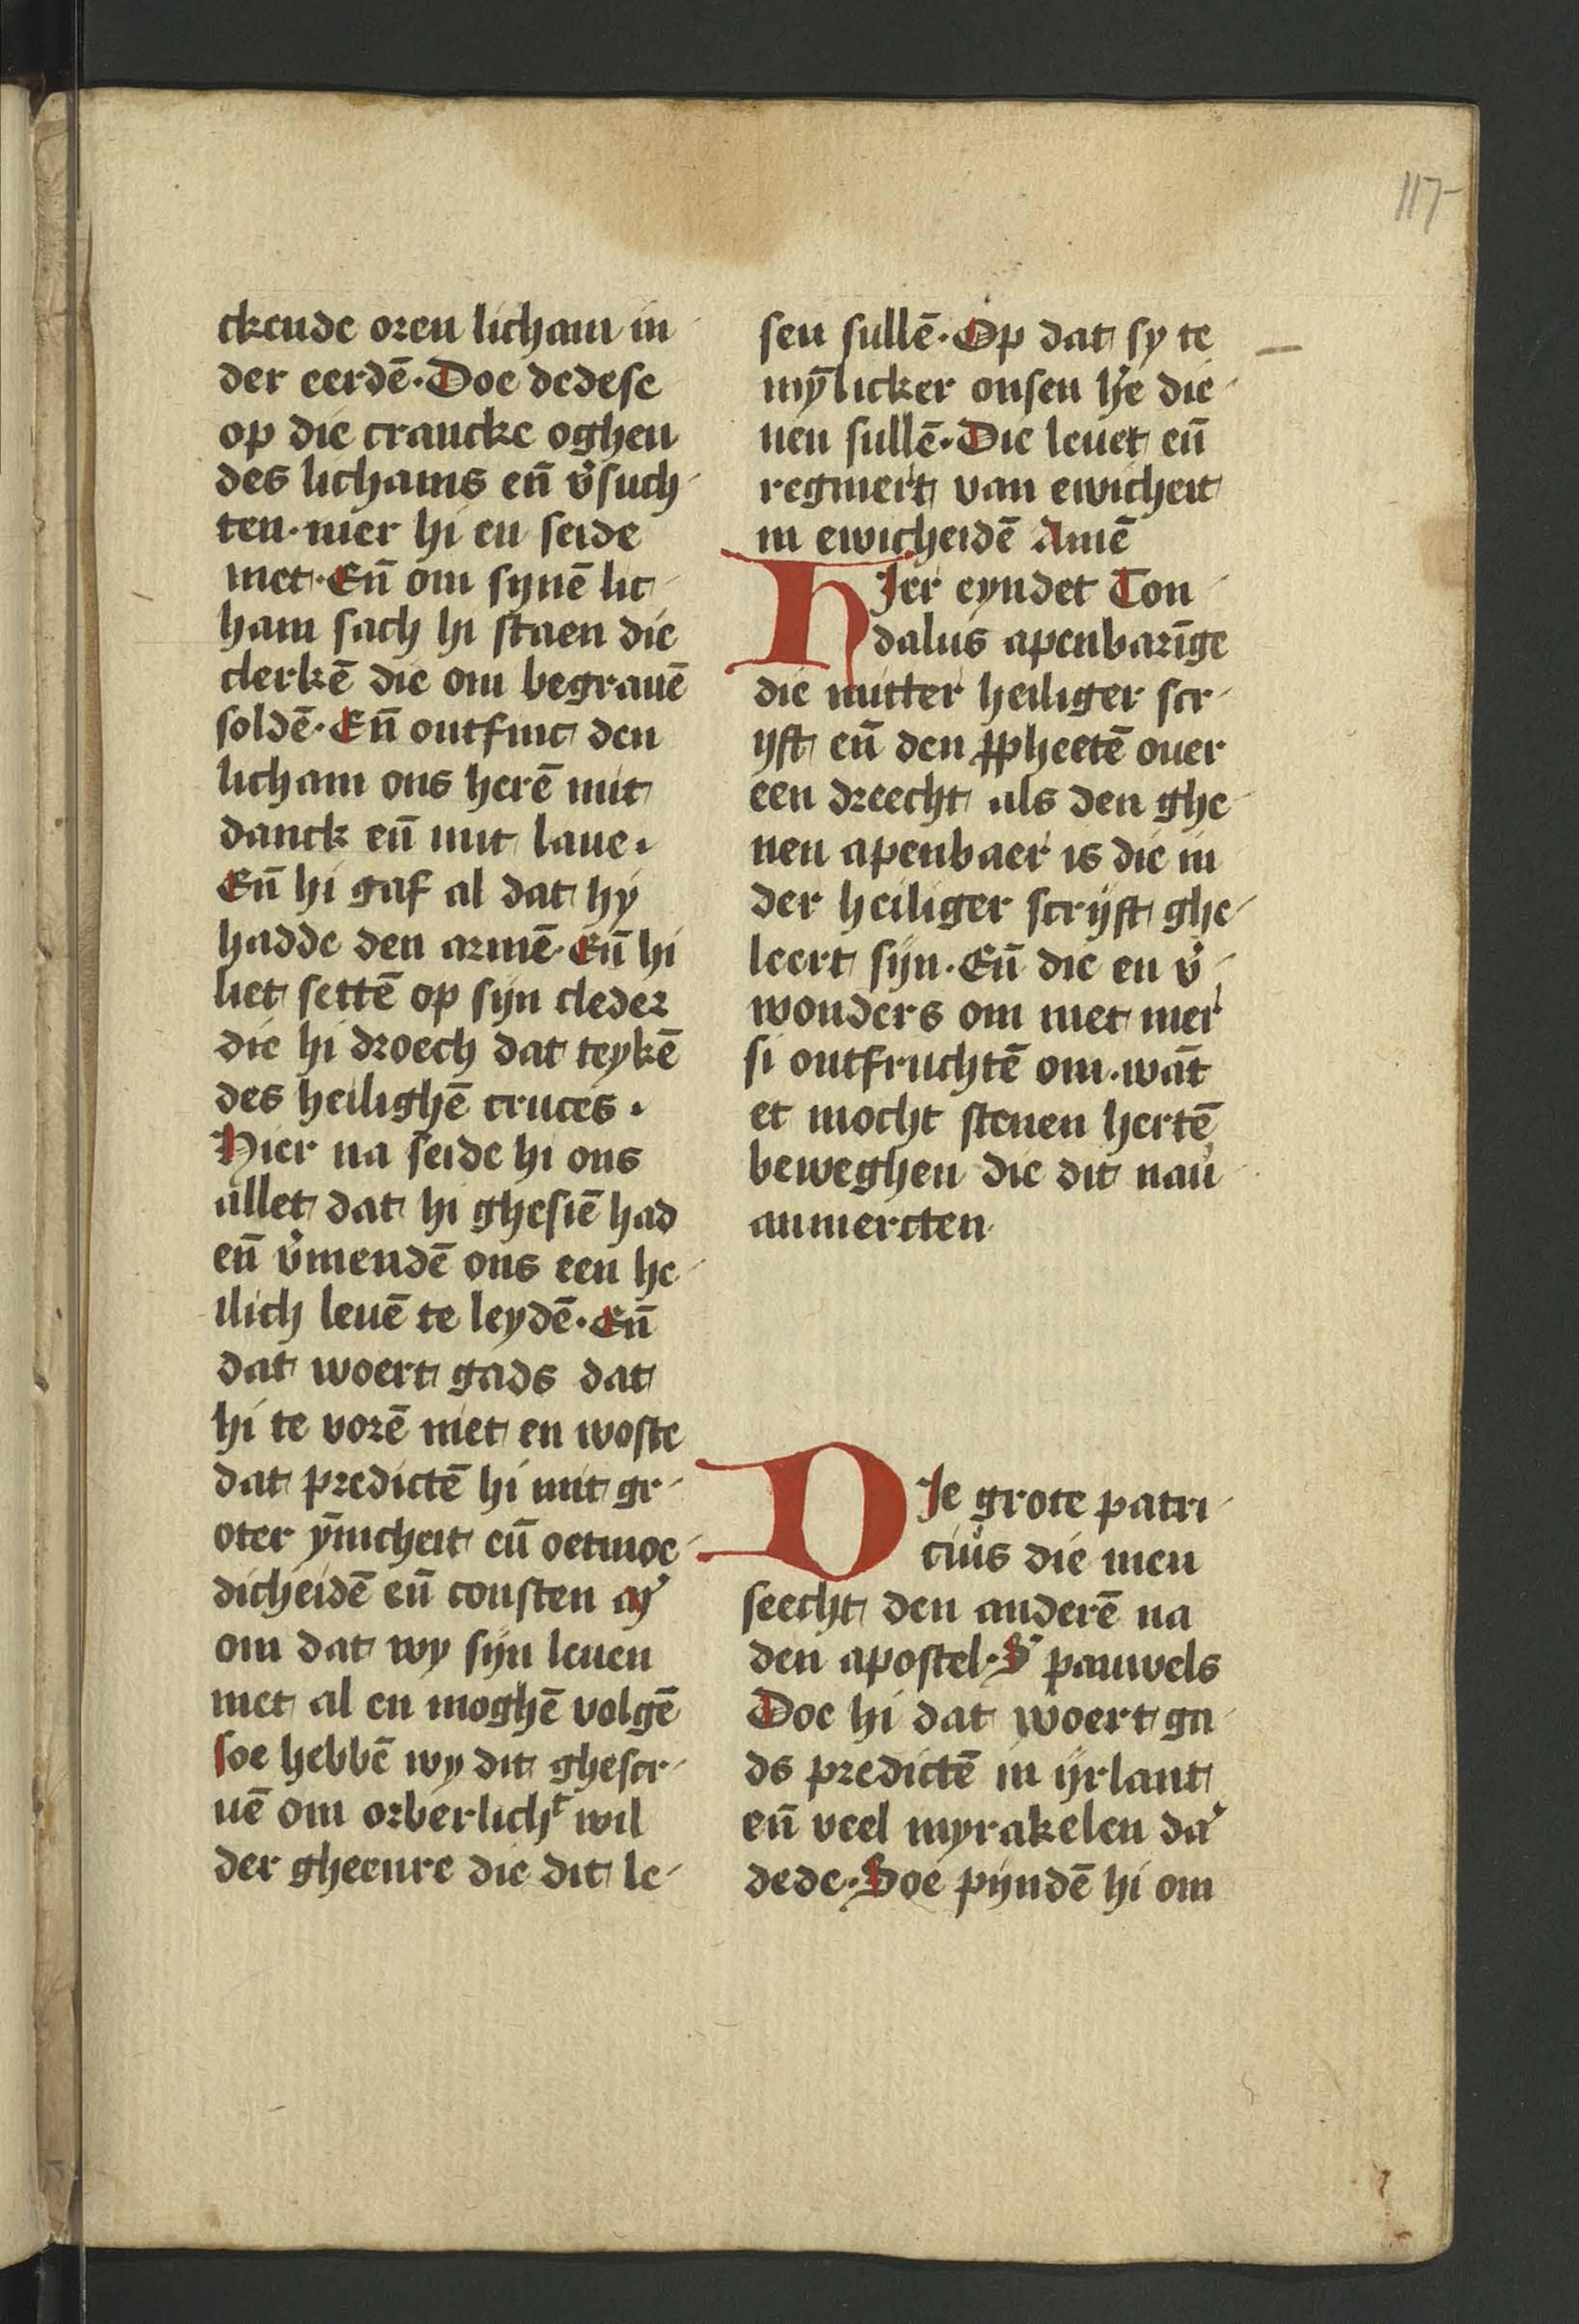 117
ckende oren licham in
der eerdē. Doe dedese
op die crancke oghen
des lichams eñ v̉such
ten. mer hi en seide
niet. Eñ om synē lic
ham sach hi staen die
clerkē die om begrauē
soldē. Eñ ontfinc den
licham ons herē mit
danck eñ mit laue.
Eñ hi gaf al dat hy
hadde den armē. Eñ hi
liet settē op sijn cleder
die hi droech dat teykē
des heilighē cruces.
Hier na seide hi ons
allet dat hi ghesiē had
eñ v̉mendē ons een he
ilich leuē te leydē. Eñ
dat woert gads dat
hi te vorē niet en woste
dat predictē hi mit gr
oter ȳnicheit eñ oetmoe
dicheidē eñ consten
om dat wy sijn leuen
niet al en moghē volgē
soe hebbē wy dit ghescr
uē om orberlichᵗ wil
der gheenre die dit le
sen sullē. Op dat sy te
mȳlicker onsen h̉e die
nen sullē. Die leuet eñ
regniert van ewicheit
in ewicheidē Amē
HJer eyndet Ton
dalus apenbarīge
die mitter heiliger scr
ijft eñ den ꝓpheetē ouer
een dreecht als den ghe
nen apenbaer is die in
der heiliger scrijft ghe
leert sijn. Eñ die en v̉
wonders om niet mer
si ontfruchtē om. wāt
et mocht stenen hertē
beweghen die dit nau
anmercten
DJe grote patri
cius die men
seecht den anderē na
den apostel. S' pauwels
Doe hi dat woert ga
ds predictē in ijrlant
eñ veel myrakelen da'
dede. Soe pijndē hi om